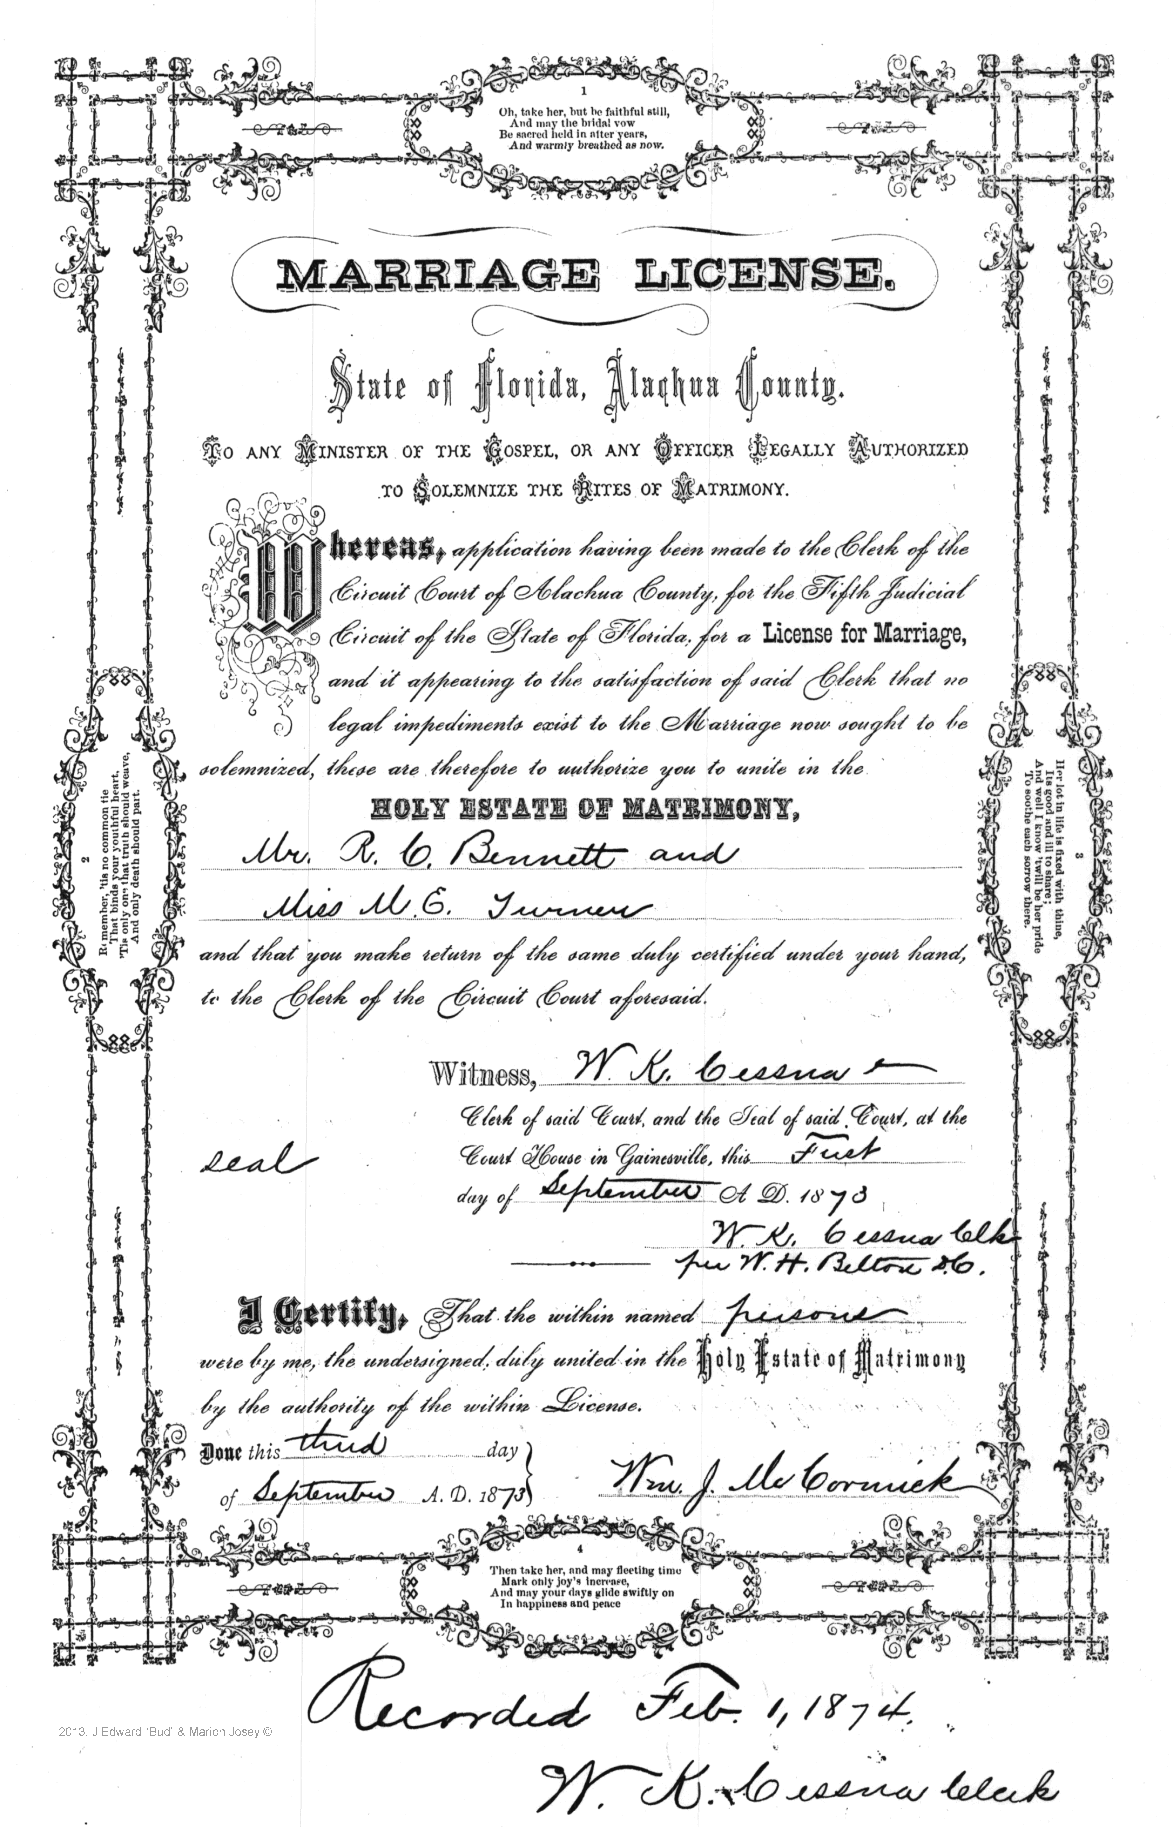 1
Oh, take her, but be faithful still,
And may the bridal vow
Be sacred held in after years,
And warmly breathed as now.
MARRIAGE LICENSE.
State of Florida, Alachua County.
To any Minister of the Gospel, or any Officer Legally Authorized
to Solemnize the Rites of Matrimony.
Whereas, application having been made to the Clerk of the
Circuit Court of Alachua County, for the Fifth Judicial
Circuit of the State of Florida, for a License for Marriage,
and it appearing to the satisfaction of said Clerk that no
legal impediments exist to the Marriage now sought to be
solemnized, these are therefore to authorize you to unite in the
HOLY ESTATE OF MATRIMONY,
Mr. R. C. Bennett and
Miss M. E. Turner
and that you make return of the same duly certified under your hand,
to the Clerk of the Circuit Court aforesaid.
2
Remember, 'tis no common tie
That binds your youthful heart,
'Tis only one that truth should weave,
And only death should part.
3
Her lot in life is fixed with thine,
Its good and ill to share;
And well I know 'twill be her pride
To soothe each sorrow there.
Witness, W. K. Cessna
Clerk of said Court, and the Seal of said Court, at the
seal
Court House in Gainesville, this First
day of September A. D. 1873
W. K. Cessna Clk
per W. H. Belton D.C.
I Certify, That the within named persons
were by me, the undersigned, duly united in the Holy Estate of Matrimony
by the authority of the within License.
Done this third day
of September A. D. 1873
Wm. J. McCormick
4
Then take her, and may fleeting time
Mark only joy's increase,
And may your days glide swiftly on
In happiness and peace
Recorded Feb. 1, 1874.
2013. J Edward 'Bud' & Marion Josey ©
W. K. Cessna Clerk